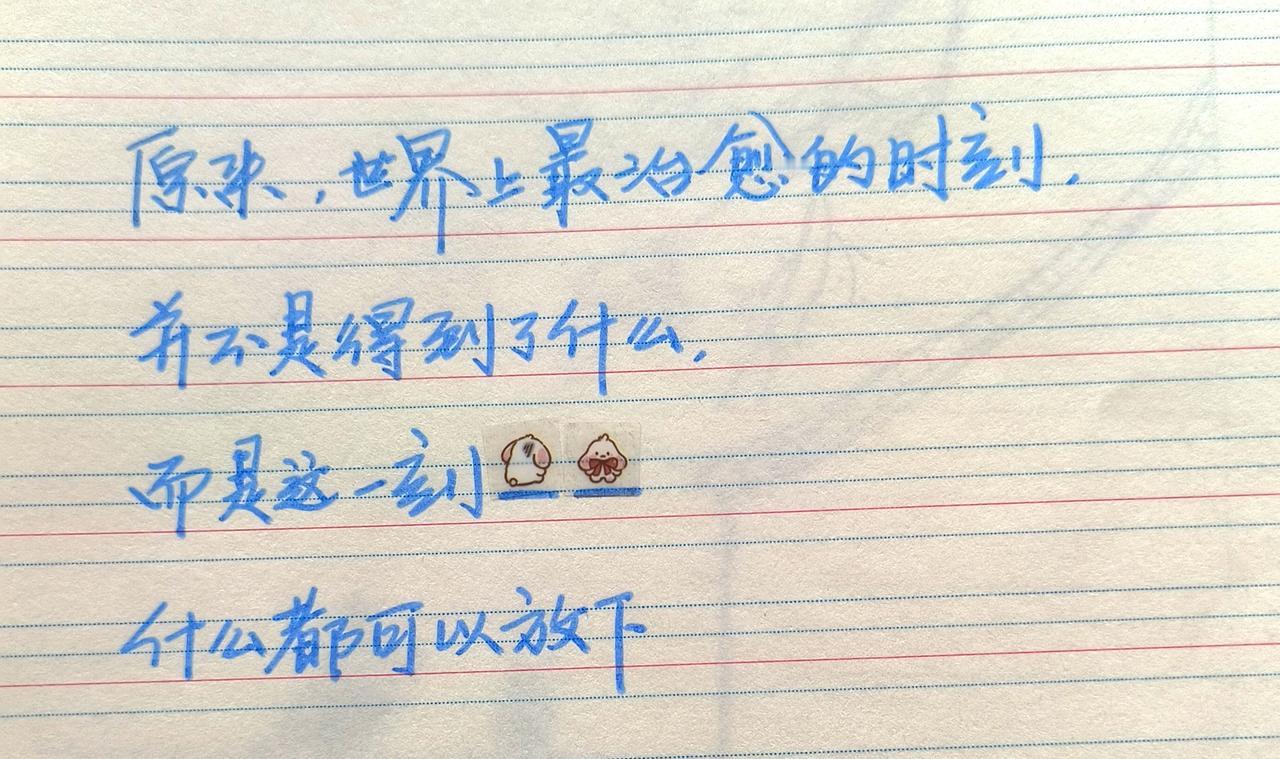 原来，世界上最治愈的时刻，
并不是得到了什么，
而是这一刻
什么都可以放下